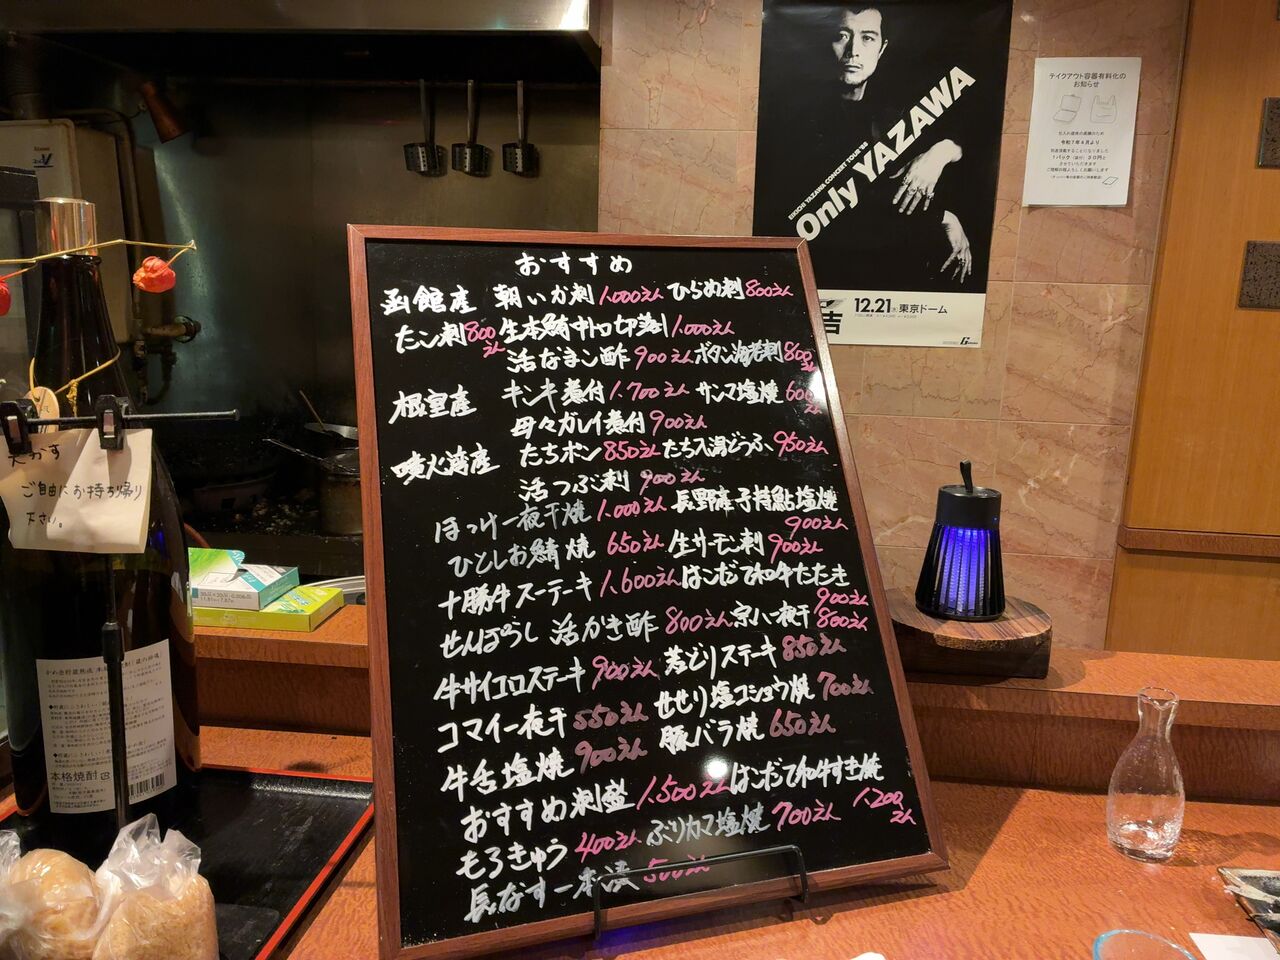 おすすめ
函館産 朝いか刺 1.000えん ひらめ刺 800えん
たん刺 800えん 生本鮪中トロ切落し 1.000えん
活なまこ酢 900えん ボタン海老刺 800えん
根室産 キンキ煮付 1.700えん サンマ塩焼 600えん
母々ガレイ煮付 900えん
噴火湾産 たちポン 850えん たち入湯どうふ 950えん
活つぶ刺 900えん
ほっけ一夜干焼 1.000えん 長野産子持鮎塩焼 900えん
ひとしお鯖焼 650えん 生サーモン刺 900えん
十勝牛ステーキ 1.600えん はこだて和牛たたき 900えん
せんぽうし 活かき酢 800えん 宗八一夜干 800えん
牛サイコロステーキ 900えん 若どりステーキ 850えん
コマイ一夜干 550えん せせり塩コショウ焼 700えん
牛舌塩焼 900えん 豚バラ焼 650えん
おすすめ刺盛 1.500えん はこだて和牛すき焼 1.200えん
もろきゅう 400えん ぶりカマ塩焼 700えん
長なす一本漬 500えん
EIKICHI YAZAWA CONCERT TOUR '88
Only YAZAWA
12.21 東京ドーム
テイクアウト容器有料化の
お知らせ
令和7年4月より
1パック(袋付)30円と
させていただきます
ご自由にお持ち帰り
下さい。
本格焼酎